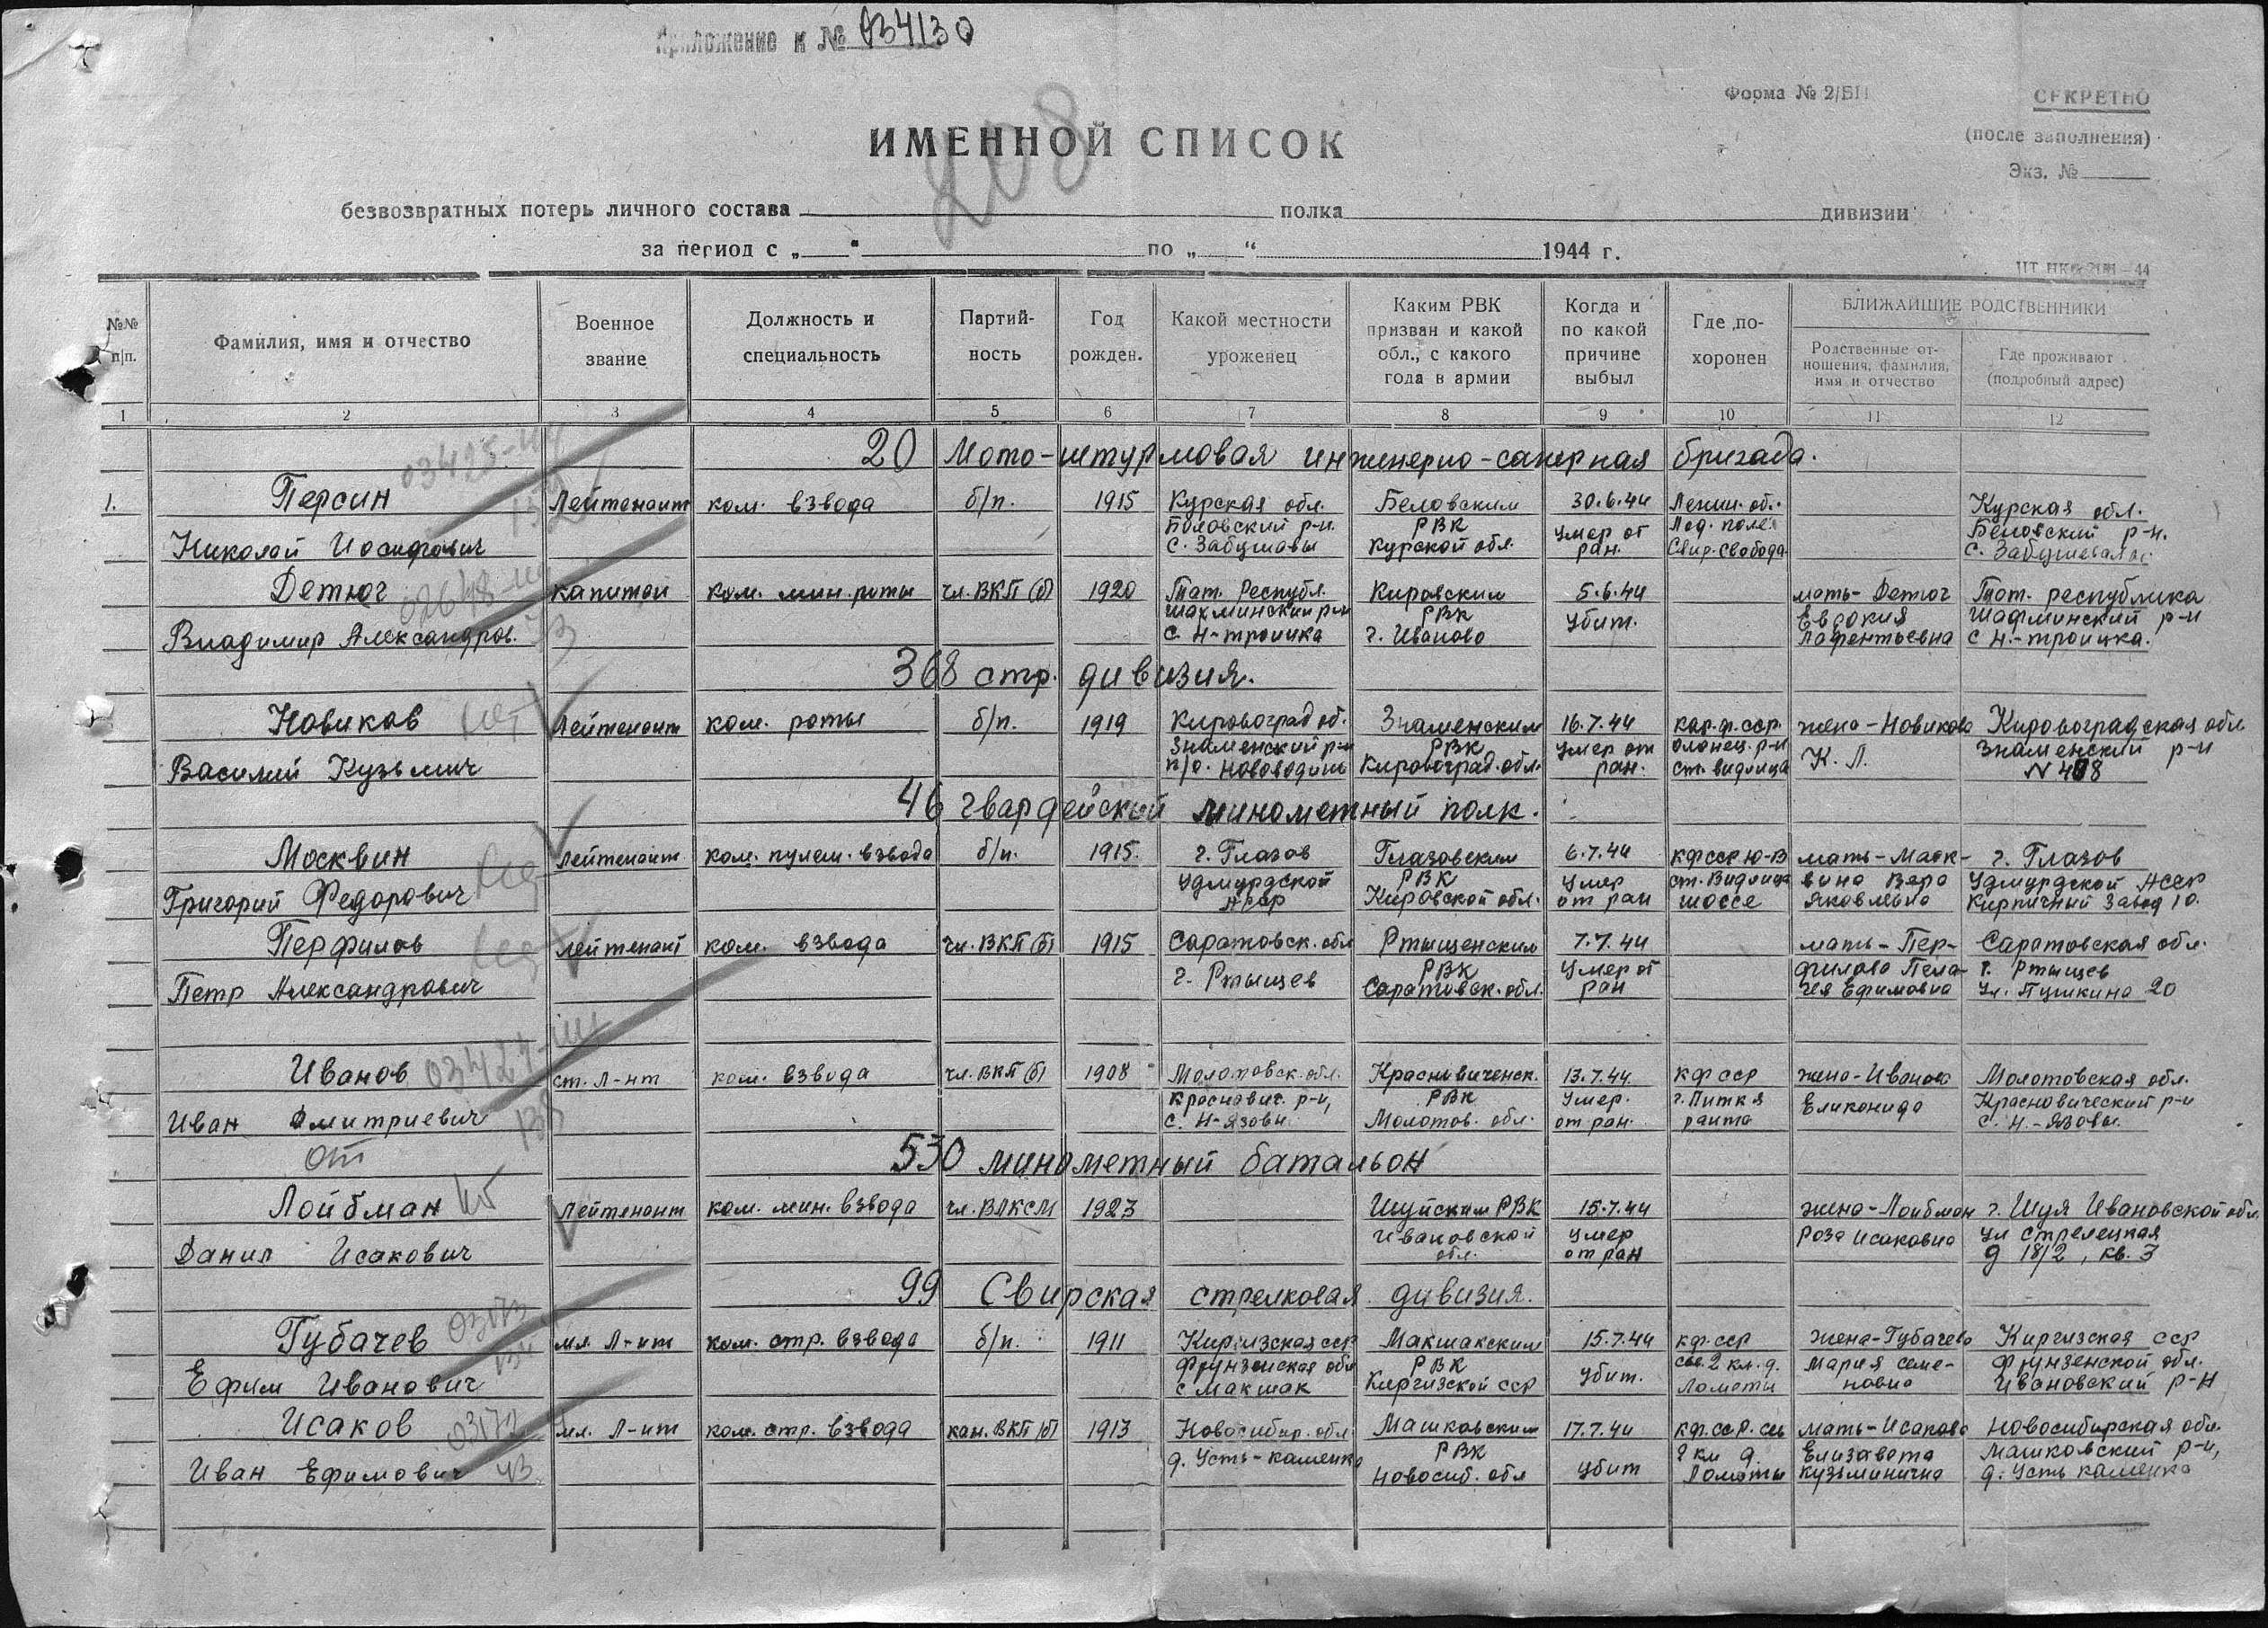 Приложение к № 034130
208
Форма № 2/БП
СЕКРЕТНО
(после заполнения)
Экз. №
ИМЕННОЙ СПИСОК
безвозвратных потерь личного состава полка дивизии
за период с „ “ по „ “ 1944 г.
№№ п/п.
Фамилия, имя и отчество
Военное звание
Должность и специальность
Партий-
ность
Год рожден.
Какой местности уроженец
Каким РВК
призван и какой
обл., с какого
года в армии
Когда и
по какой
причине
выбыл
Где по-
хоронен
БЛИЖАЙШИЕ РОДСТВЕННИКИ
Родственные от-
ношения, фамилия,
имя и отчество
Где проживают
(подробный адрес)
1 2 3 4 5 6 7 8 9 10 11 12
20 Мото-штурмовая инженерно-саперная бригада.
1. Персин Лейтенант ком. взвода б/п. 1915 Курская обл. Беловским 30.6.44 Ленин. обл. Курская обл.
Беловский р-н. РВК умер от Лод. поле Беловский р-н.
Николай Иосифович с. Забушавы Курской обл. ран. Свир. свобода
03425-
Детюг капитан ком. мин. роты чл. ВКП(б) 1920 Тат. Республ. Кировским 5.6.44 мать-Детюг Тат. республика
шахминский р-н РВК убит. Евдокия шафминский р-н
Владимир Александров. с. Н-троицка г. Иваново Лафентьевна с Н.-троицка.
02648-
368 стр. дивизия.
Новиков Лейтенант ком. роты б/п. 1919 Кировоград об. Знаменским 16.7.44 кар.ф.сср. жена-Новикова Кировоградская обл.
Знаменский р-н РВК умер от олонец. р-н К. Л. Знаменский р-н
Василий Кузьмич п/о. Нововодинь Кировоград. обл. ран. ст. видлица N 408
46 гвардейский минометный полк.
Москвин Лейтенант ком. пулем. взвода б/п. 1915. г. Глазов Глазовским 6.7.44 кфсср ю-в мать-Моск- г. Глазов
Удмурдской РВК умер ст. Видлица вина Вера Удмурдской АССР
Григорий Федорович АССР Кировской обл. от ран шоссе Яковлевна Кирпичный завод 10.
Перфилов лейтенант ком. взвода чл. ВКП(б) 1915 Саратовск. обл Ртыщенским 7.7.44 мать-Пер- Саратовская обл.
г. Ртыщев РВК умер от филова Пела- г. Ртыщев
Петр Александрович Саратовск. обл. ран гея Ефимовна ул. Пушкина 20
Иванов ст. л-нт ком. взвода чл. ВКП(б) 1908 Молотовск. обл. Красновиченск. 13.7.44 кфсср жена-Иванова Молотовская обл.
Красновиг. р-н, РВК умер. г. Питкя Еликонида Красновический р-н
Иван Дмитриевич с. Н-Язовы Молотов. обл. от ран. ранта с. Н.-Язовы.
03424-
138
от
530 минометный батальон
Лойбман Лейтенант ком. мин. взвода чл. ВЛКСМ 1923 Шуйским РВК 15.7.44 жена-Лойбман г. Шуя Ивановской обл.
Ивановской умер Роза Исаковна ул Стрелецкая
Данил Исакович обл. от ран д 18/2, кв. 3
99 Свирская стрелковая дивизия.
Губачев мл. л-нт ком. стр. взвода б/п. 1911 Киргизская сср Макшакским 15.7.44 кф.сср жена-Губачева Киргизская сср
Фрунзенская обл РВК убит. сев. 2 км. д. Мария Семе- Фрунзенской обл.
Ефим Иванович с Макшак Киргизской сср Ломоты новна Ивановский р-н
03173
Исаков мл. л-нт ком. стр. взвода кан. ВКП(б) 1913 Новосибир. обл. Машковским 17.7.44 кф.сср. сев мать-Исакова Новосибирская обл.
д. Усть-каменка РВК убит 2 км д. Елизавета Машковский р-н,
Иван Ефимович Новосиб. обл Ломоты Кузьминична д. Усть каменка
03172
43